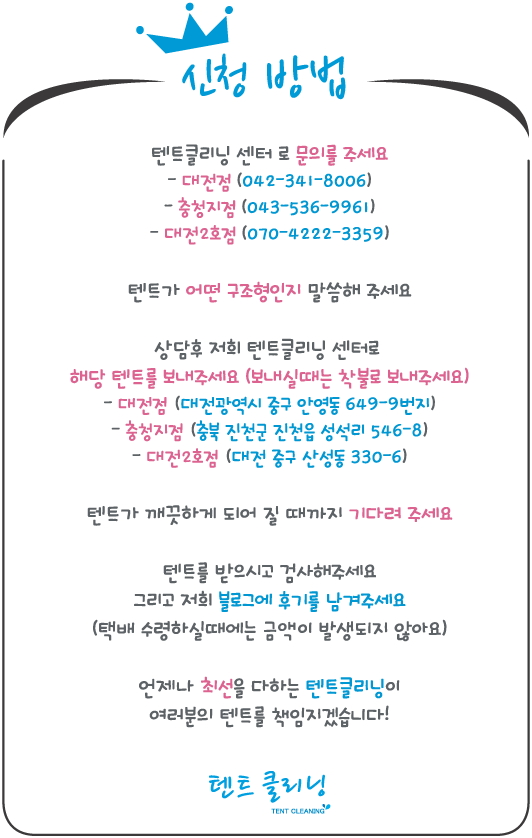 신청 방법
텐트클리닝 센터 로 문의를 주세요
- 대전점 (042-341-8006)
- 충청지점 (043-536-9961)
- 대전2호점 (070-4222-3359)
텐트가 어떤 구조형인지 말씀해 주세요
상담후 저희 텐트클리닝 센터로
해당 텐트를 보내주세요 (보내실때는 착불로 보내주세요)
- 대전점 (대전광역시 중구 안영동 649-9번지)
- 충청지점 (충북 진천군 진천읍 성석리 546-8)
- 대전2호점 (대전 중구 산성동 330-6)
텐트가 깨끗하게 되어 질 때까지 기다려 주세요
텐트를 받으시고 검사해주세요
그리고 저희 블로그에 후기를 남겨주세요
(택배 수령하실때에는 금액이 발생되지 않아요)
언제나 최선을 다하는 텐트클리닝이
여러분의 텐트를 책임지겠습니다!
텐트 클리닝
TENT CLEANING